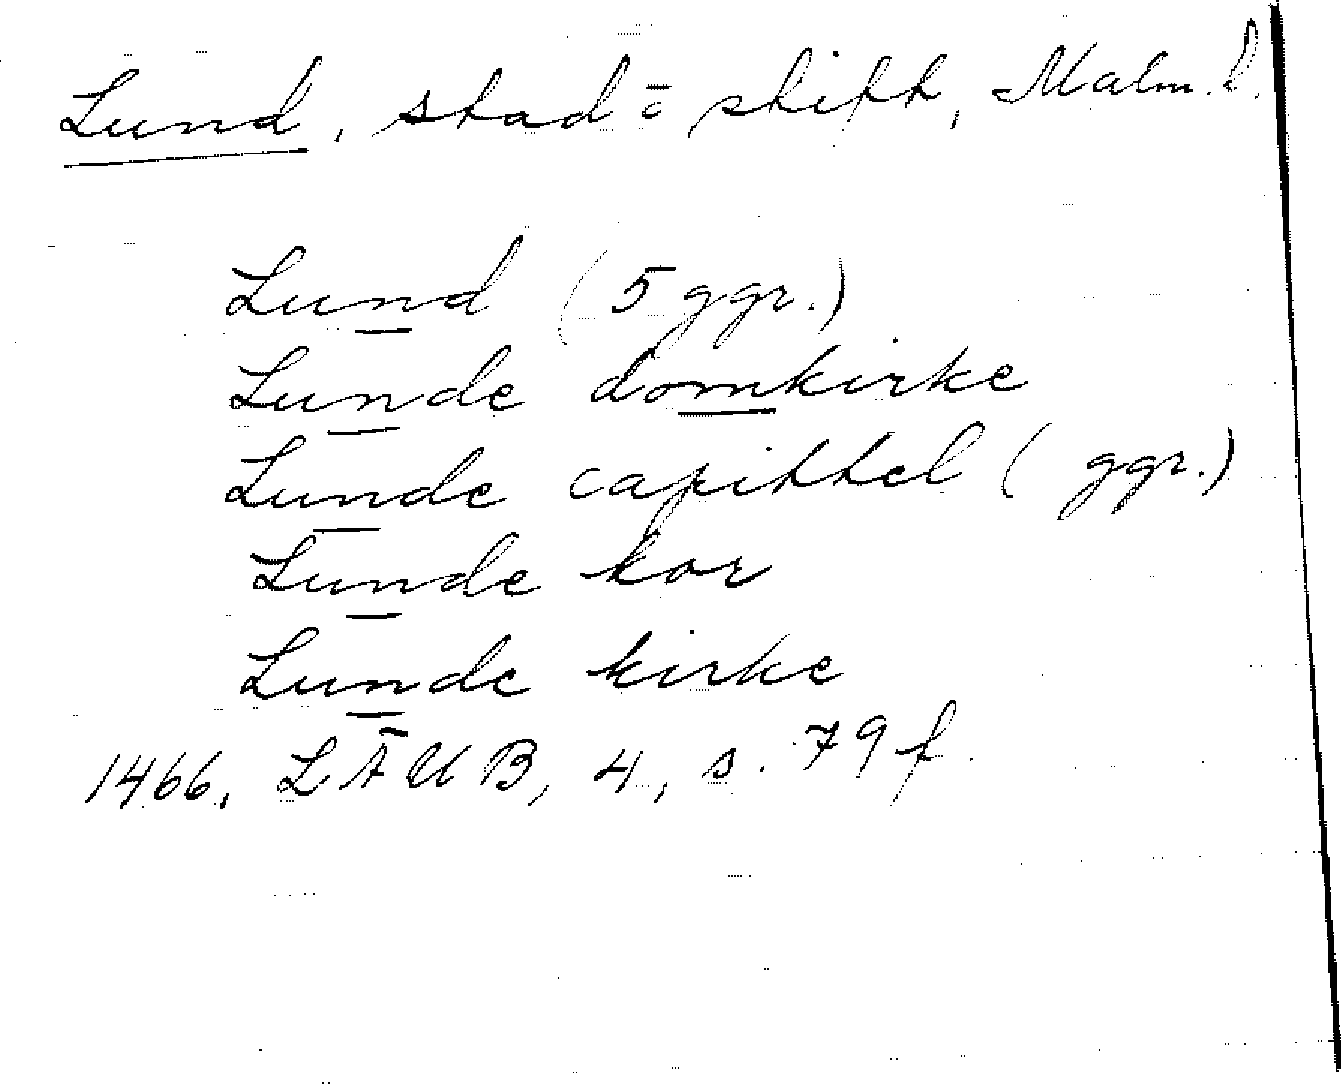 Lund, stad o skift, Malm.l.
Lund (5 ggr.)
Lunde domkirke
Lunde capittel ( ggr.)
Lunde kor
Lunde kirke
1466, LÄUB, 4, s. 79 f.